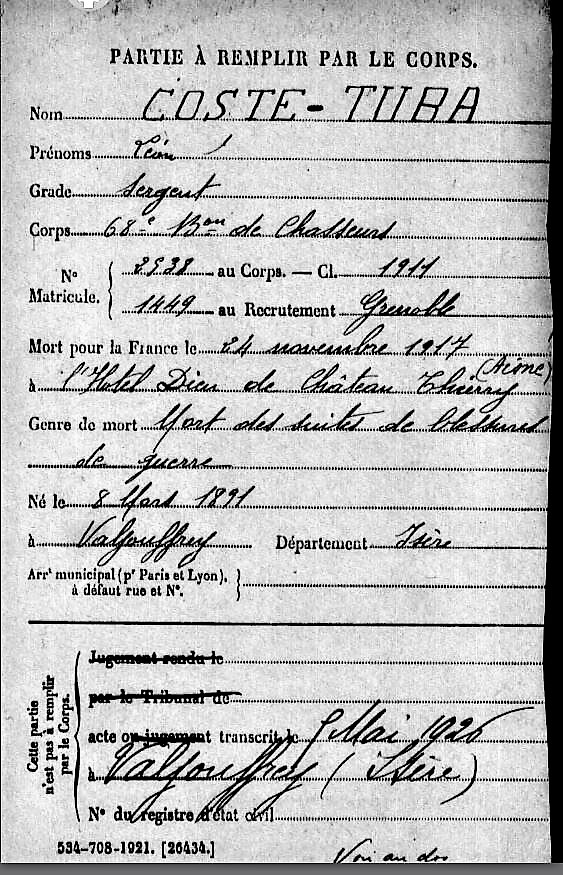 PARTIE À REMPLIR PAR LE CORPS.
Nom COSTE-TUBA
Prénoms Léon
Grade Sergent
Corps 68e Bon de Chasseurs
N° Matricule. 2538 au Corps. — Cl. 1911
1449 au Recrutement Grenoble
Mort pour la France le 24 novembre 1917
à l'Hotel Dieu de Château Thierry (Aisne)
Genre de mort Mort des suites de blessures
de guerre
Né le 8 Mars 1891
à Valjouffrey Département Isère
Arrt municipal (pr Paris et Lyon),
à défaut rue et N°.
Cette partie n'est pas à remplir par le Corps.
Jugement rendu le
par le Tribunal de
acte ou jugement transcrit le 5 Mai 1926
à Valjouffrey (Isère)
N° du registre d'état civil
534-708-1921. [26434.]
Voir au dos